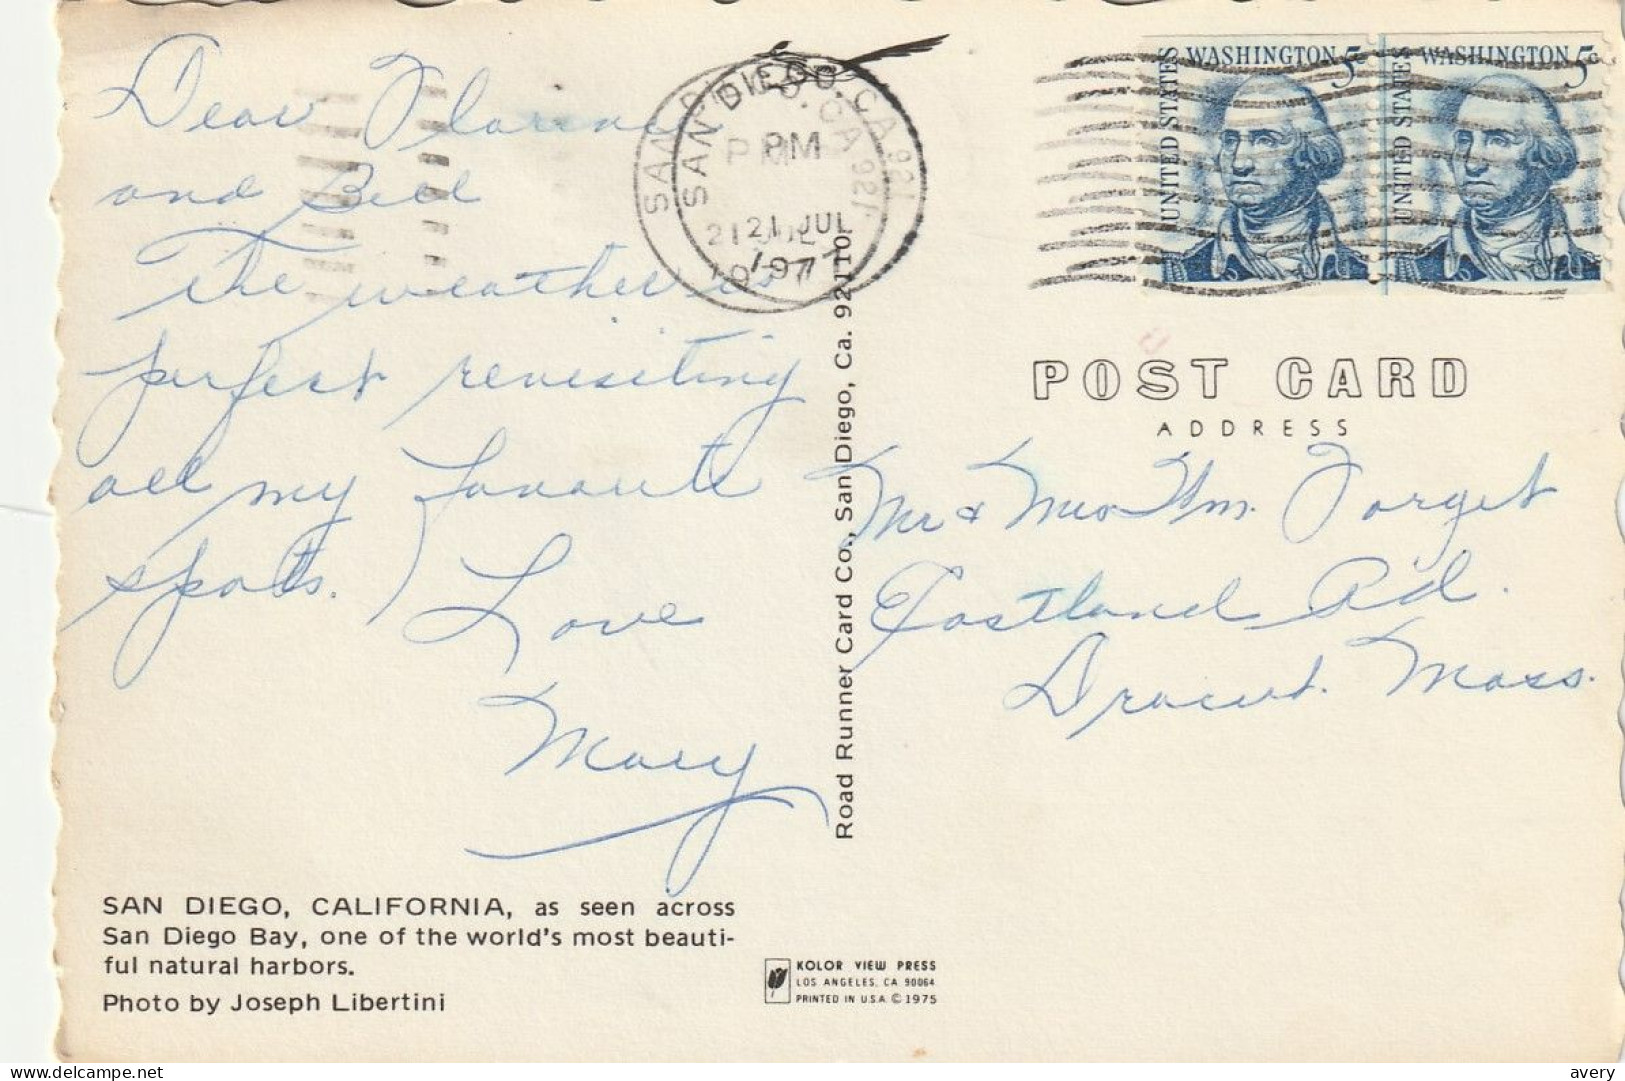 Dear Florence
and Bill
The weather is
perfect revisiting
all my favorite
spots.
Love
Mary
SAN DIEGO, CALIFORNIA, as seen across
San Diego Bay, one of the world's most beauti-
ful natural harbors.
Photo by Joseph Libertini
SAN DIEGO, CA 921
PM
21 JUL
1977
SAN DIEGO, CA 921
PM
21 JUL
1977
Road Runner Card Co., San Diego, Ca. 92110
KOLOR VIEW PRESS
LOS ANGELES, CA 90064
PRINTED IN U.S.A. © 1975
UNITED STATES
WASHINGTON 5c
UNITED STATES
WASHINGTON 5c
POST CARD
ADDRESS
Mr & Mrs Wm. Forget
Eastland Rd.
Dracut. Mass.
avery
delcampe.net